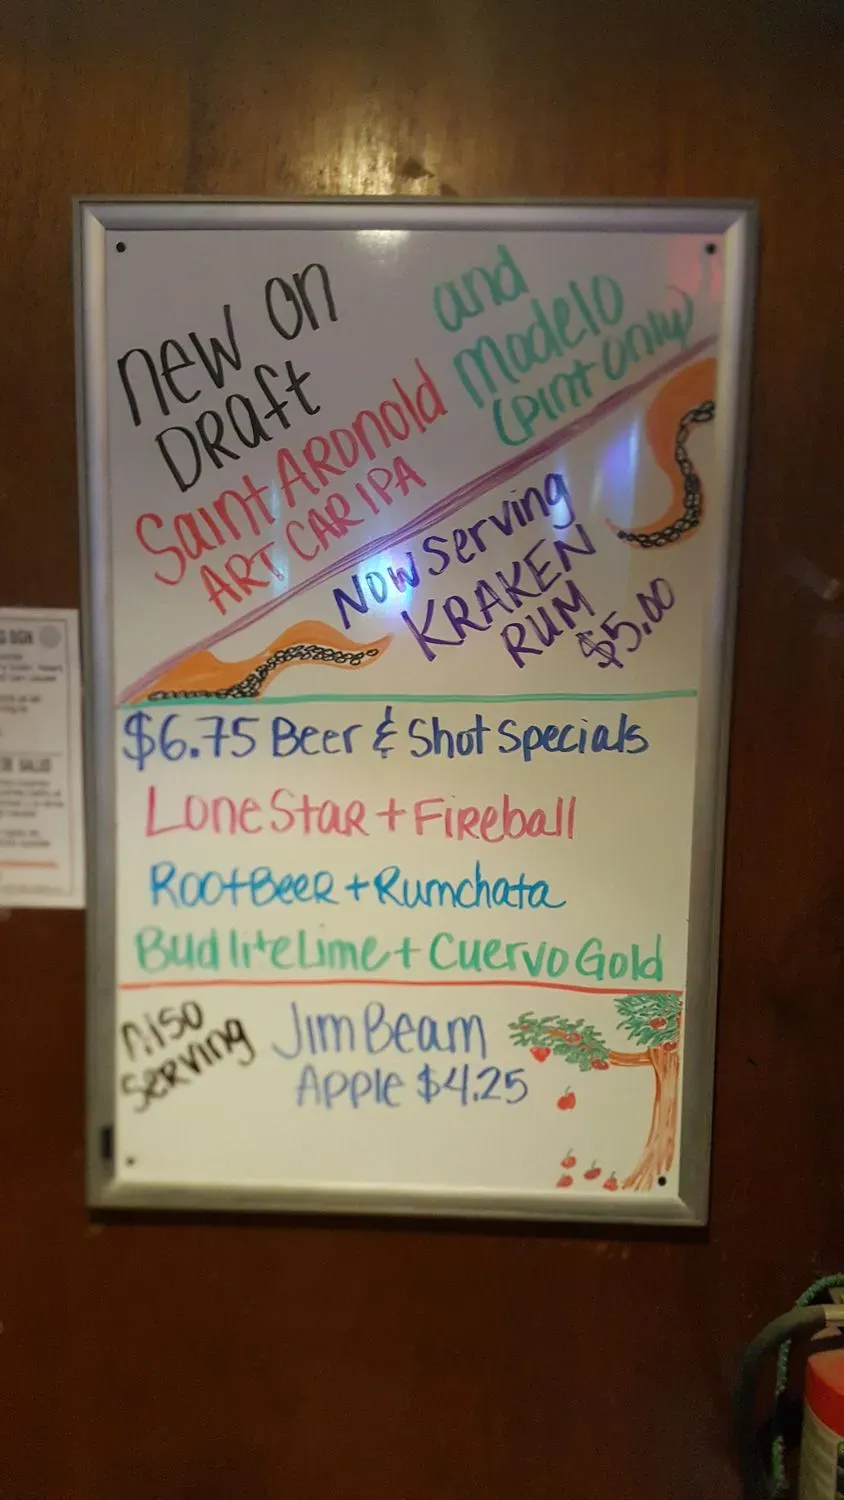 new on
Draft
Saint Aronold
Art Car IPA
and
Modelo
(pint only)
Now Serving
KRAKEN
RUM
$5.00
$6.75 Beer & Shot Specials
Lone Star + Fireball
RootBeer + Rumchata
Bud lite Lime + Cuervo Gold
Also
Serving
Jim Beam
Apple $4.25